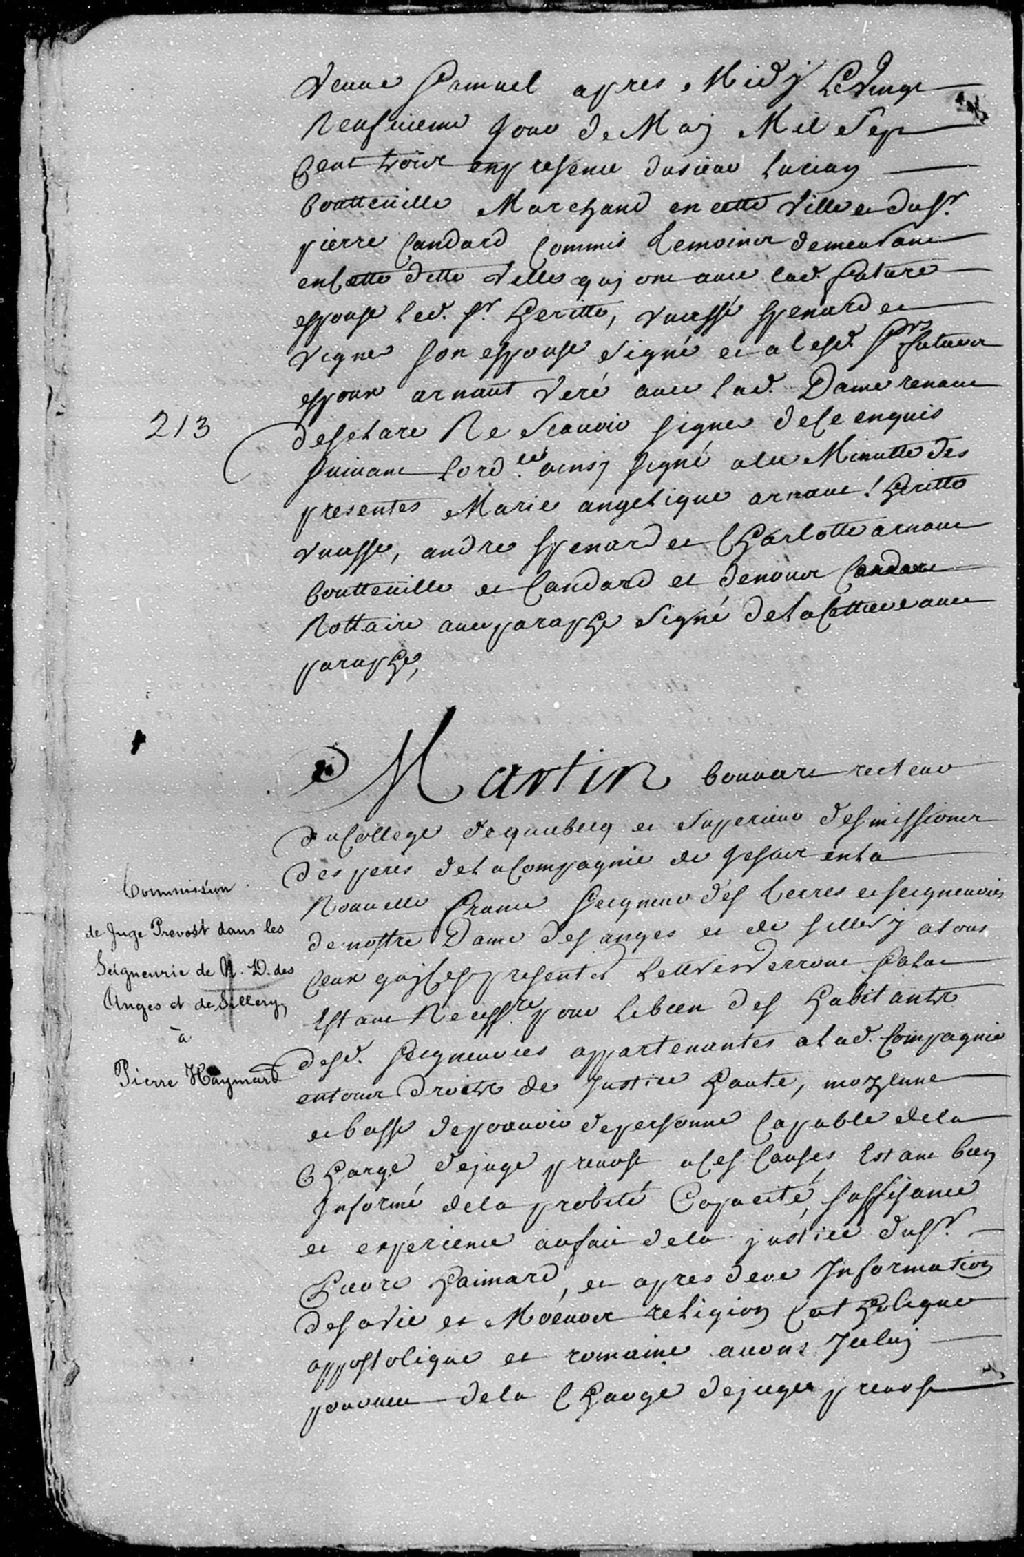 veuve Samuel apres Midy Le vingt
Neufvieme Jour de May Mil Sept
Cent trois en presence du sieur Lucien
boutteuille Marchand en cette Ville et du Sr.
pierre Candard Commis temoins demeurant
en Cette ditte Ville quj ont avec lad. future
espouse led. Sr. Peritto, vuessé Spenard et
vigne son espouse signé et a lesd. Srs futur
espoux arnaut veré avec lad. Dame renaut
desclaré Ne scavoir signer de Ce enquis
suivant Lordce ainsy signé a la Minutte des
presentes Marie angelique arnaut, Peritto
vuesse, andre Spenard et Charlotte arnaut
boutteuille et Candard et de nous
Nottaire avec paraphe signé de la Cettiere avec
paraphe,
213
Martin bouuart recteur
du College de quebecq et superieur des missions
des peres de la Compagnie de Jesus en la
Nouvelle france Seigneur des terres et seigneuries
de nostre Dame des anges et de sillery a tous
Ceux quj Ces presentes lettres verront salut
Estant Necessre pour le bien des habitants
desd. seigneuries appartenantes a lad. Compagnie
en tous droits de Justice haute, moyenne
et basse de pouruoir de personne Capable de la
Charge de juge preuost a Ces Causes Estant bien
Informé de la probité Capacité, suffisance
et experience au fait de la justice du Sr.
Pierre haimard, et apres deue Information
de sa vie et Moeurs religion Catholique
appostolique et romaine auons Jceluy
pourueu de la Charge de juge preuost
Commission
de Juge Prevost dans les
Seigneurie de N. D. des
Anges et de Sillery
à
Pierre Haymard